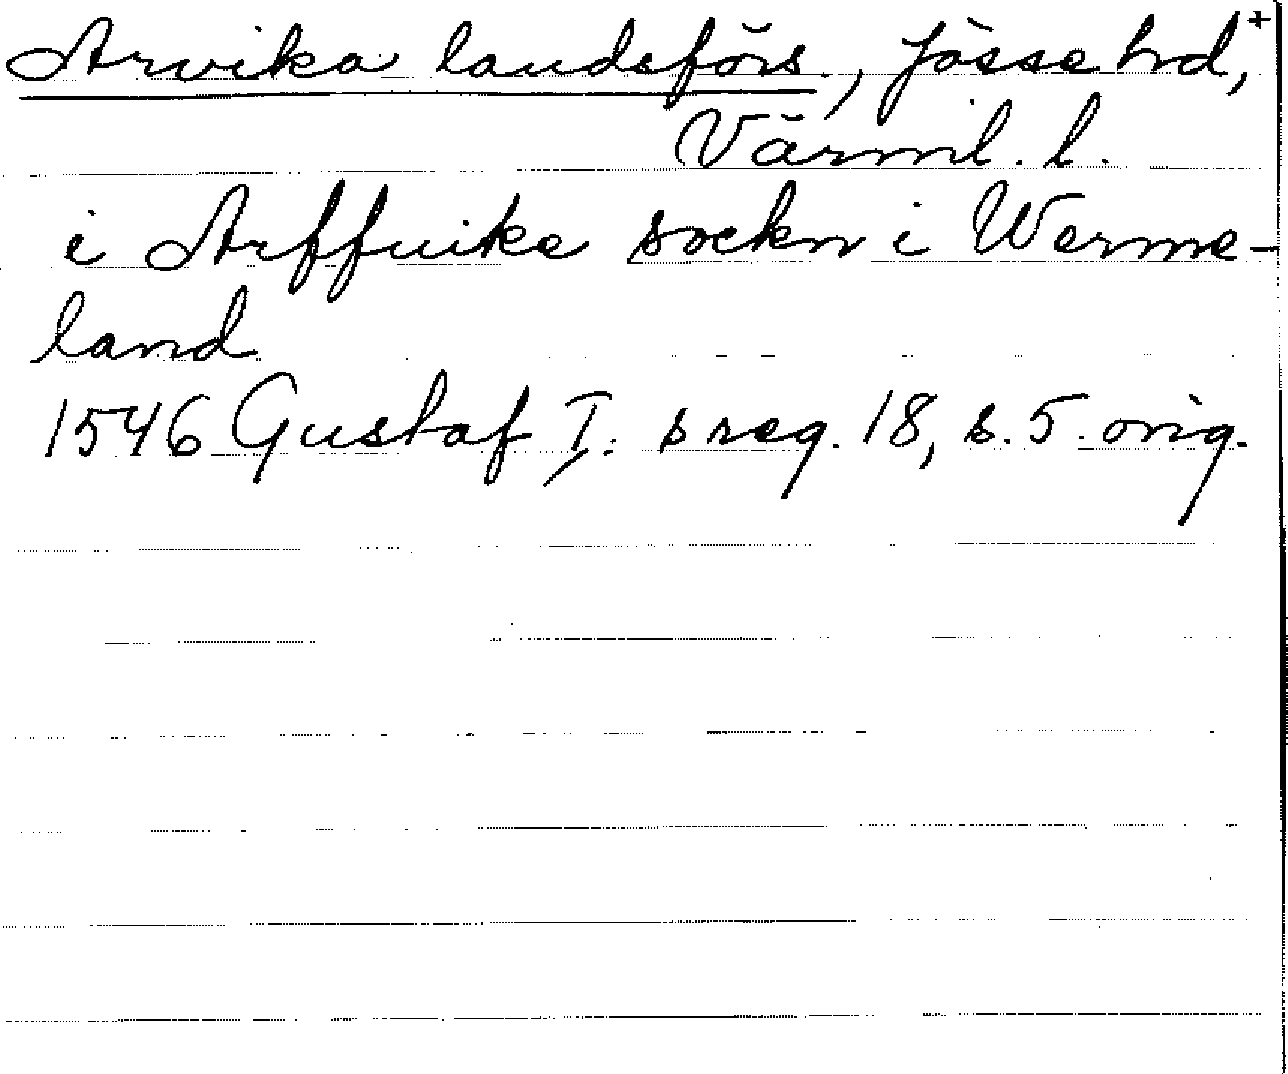 Arvika landsförs., Jösse hd, +
Värml. l.
i Arffuike sockn i Werme-
land
1546 Gustaf I:s reg. 18, s. 5. orig.